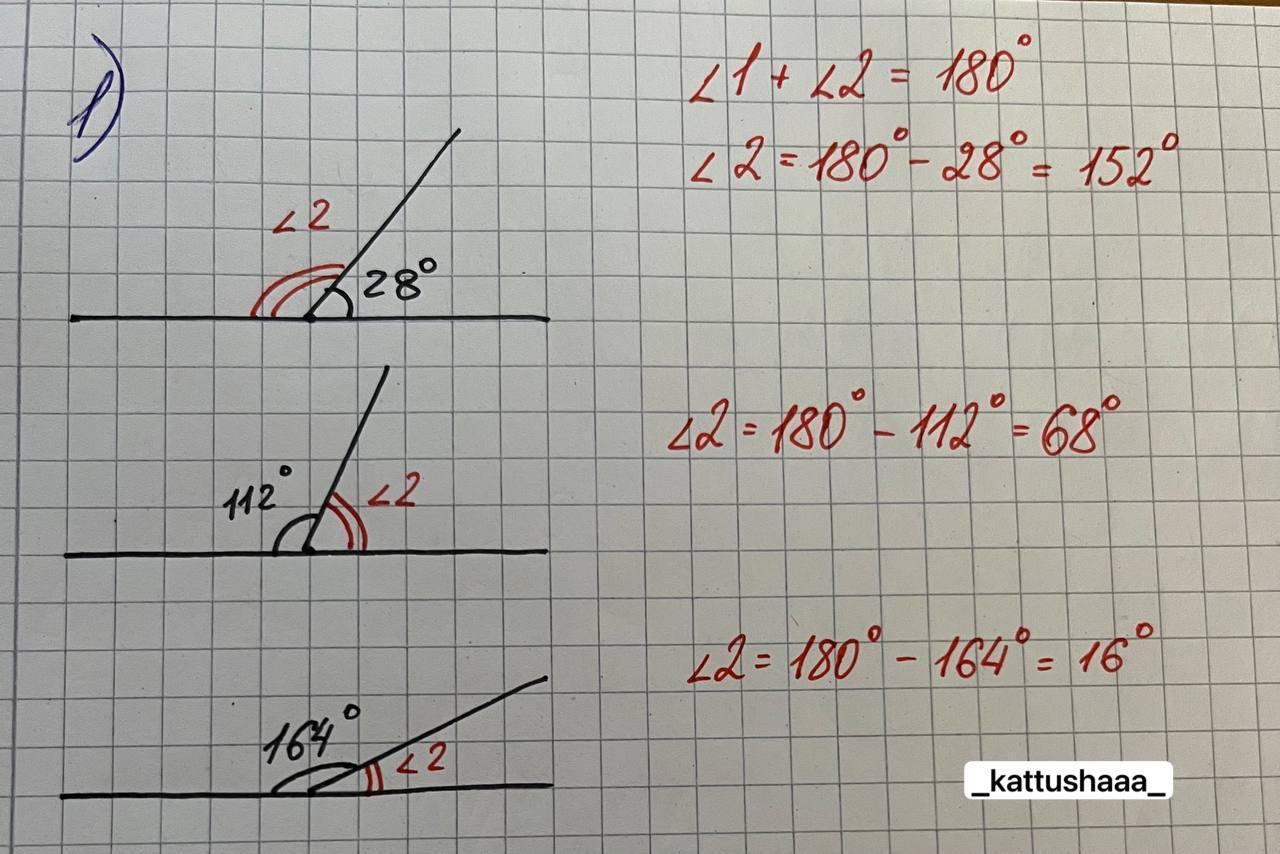 1)
∠1 + ∠2 = 180°
∠2 = 180° - 28° = 152°
∠2
28°
∠2 = 180° - 112° = 68°
112°
∠2
∠2 = 180° - 164° = 16°
164°
∠2
_kattushaaa_